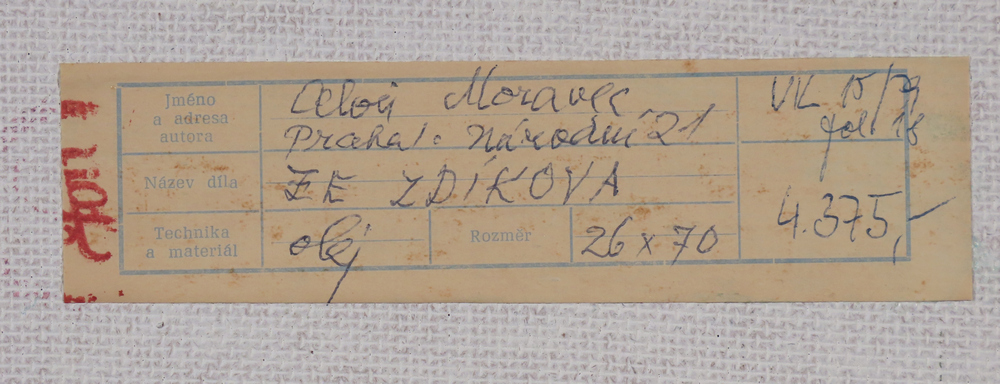 Jméno
a adresa
autora
Alois Moravec
Praha 1. Národní 21
VK 15/79
pol. 18
Název díla
ZE ZDÍKOVA
4.375,-
Technika
a materiál
olej
Rozměr
26 x 70